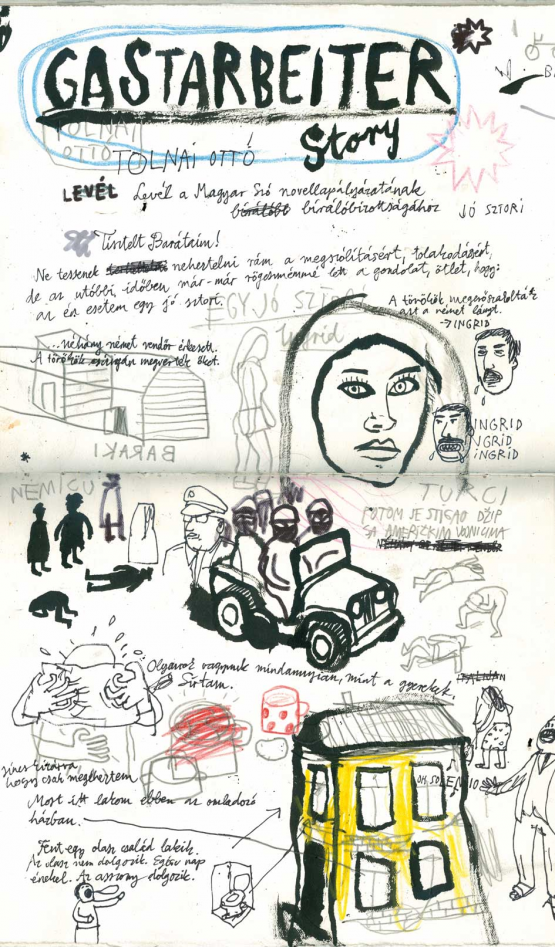 GASTARBEITER
Story
TOLNAI
OTTÓ
TOLNAI OTTÓ
LEVÉL Levél a Magyar Szó novellapályázatának
bírálóbizottságához JÓ SZTORI
Tisztelt Barátaim!
Ne tessenek nehestelni rám a megszólításért, tolakodásért,
de az utóbbi időben már-már rögeszmémmé lett a gondolat, ötlet, hogy:
az én esetem egy jó sztori.
EGY JÓ SZTORI
Ingrid
A törökök megerőszakolták
azt a német lányt.
→INGRID
...néhány német rendőr érkezett.
A törökök megverték őket.
BARAKI
INGRID
INGRID
INGRID
NEMICU
TURCI
POTOM JE STIGAO DŽIP
SA AMERIČKIM VOJNICIMA
Olyanok vagyunk mindannyian, mint a gyerekek.
Sírtam.
nincs kizárva,
hogy csak megihertem
Most itt lakom ebben az omladozó
házban.
OH, SOLE MIO
Fent egy olasz család lakik.
Az olasz nem dolgozik. Egész nap
énekel. Az asszony dolgozik.